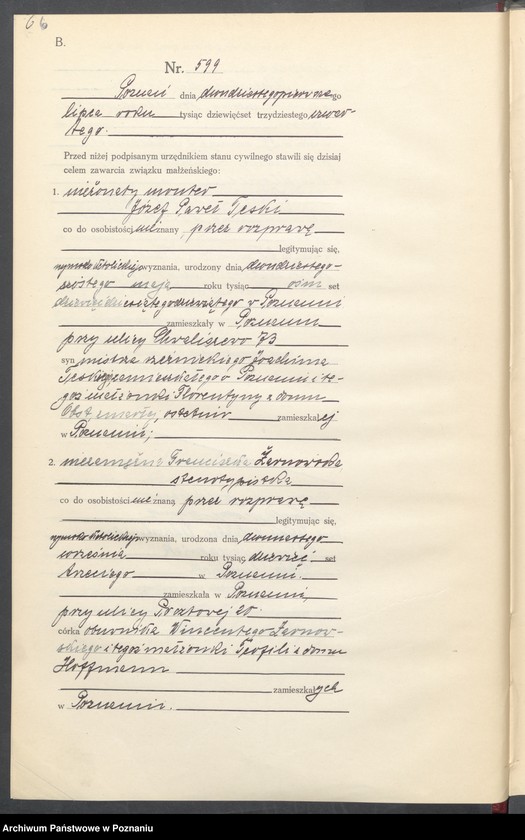 66
B.
Nr. 599
Poznań dnia dwudziestegopierwszego
lipca roku tysiąc dziewięćset trzydziestego czwar-
tego.
Przed niżej podpisanym urzędnikiem stanu cywilnego stawili się dzisiaj
celem zawarcia związku małżeńskiego:
1. nieżonaty monter
Józef Paweł Tęski
co do osobistości nieznany, przez rozprawę
legitymując się,
rzymskokatolickiego wyznania, urodzony dnia dwudziestego-
szóstego maja roku tysiąc ośm set
dziewięćdziesiątego dziewiątego w Poznaniu
zamieszkały w Poznaniu
przy ulicy Chwaliszewo 73
syn mistrza rzeźnickiego Joachima
Tęskiego zamieszkałego w Poznaniu i te-
goż małżonki Florentyny z domu
zmarłej, ostatnio zamieszkałej
w Poznaniu;
2. niezamężna Franciszka Żarnowska
stenotypistka
co do osobistości nieznana przez rozprawę
legitymując się,
rzymskokatolickiego wyznania, urodzona dnia dwunastego
września roku tysiąc dziewięć set
trzeciego w Poznaniu.
zamieszkała w Poznaniu,
przy ulicy Pocztowej 20
córka obuwnika Wincentego Żarnow-
skiego i tegoż małżonki Teofili z domu
Hoffmann
zamieszkałych
w Poznaniu.
Archiwum Państwowe w Poznaniu